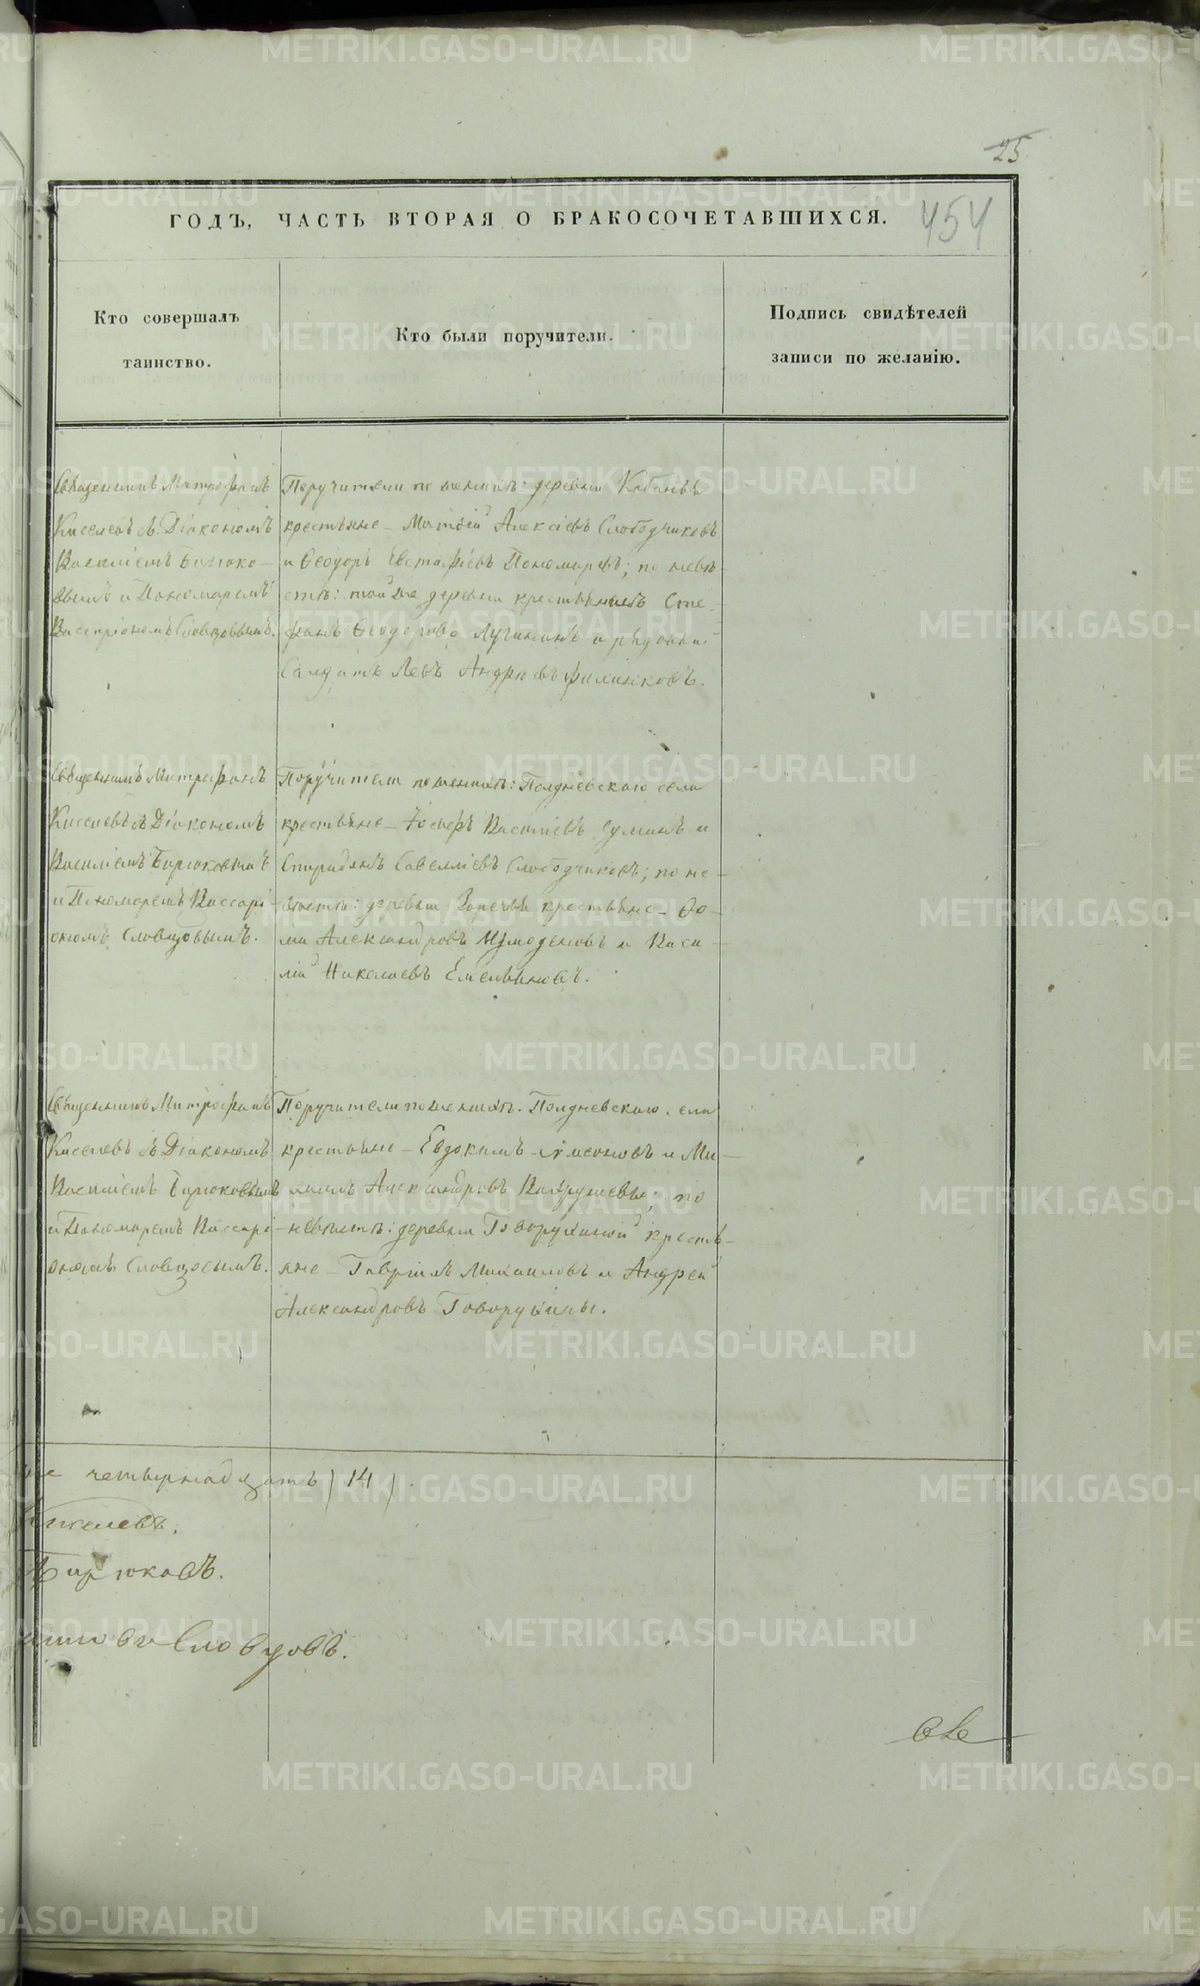 25
ГОДЪ, ЧАСТЬ ВТОРАЯ О БРАКОСОЧЕТАВШИХСЯ.
454
Кто совершалъ
таинство.
Кто были поручители.
Подпись свидѣтелей
записи по желанію.
Священникъ Митрофанъ
Киселевъ съ Діакономъ
Василіемъ Бирюко-
вымъ и Пономаремъ
Виссаріономъ Словцовымъ.
Поручители по женихѣ: деревни
крестьяне – Матѳей Алексіевъ Слободчиковъ
и Ѳеодоръ Евстафіевъ Пономаревъ; по невѣ
стѣ: той же деревни крестьянинъ Сте-
фанъ Ѳеодоровъ Лугининъ и рядовой
Салдатъ Левъ Андреевъ Филинковъ.
Священникъ Митрофанъ
Киселевъ съ Діакономъ
Василіемъ Бирюковымъ
и Пономаремъ Виссарі
ономъ Словцовымъ.
Поручители по женихѣ: Полдневскаго села
крестьяне – Іосифъ Василіевъ и
Спиридонъ Савелліевъ Слободчиковъ; по не-
вѣстѣ: деревни Заречья крестьяне – Ѳо-
ма Александровъ Измоденовъ и Васи
лій Николаевъ Емельяновъ.
Священникъ Митрофанъ
Киселевъ съ Діакономъ
Василіемъ Бирюковымъ
и Пономаремъ Виссарі
ономъ Словцовымъ.
Поручители по женихѣ. Полдневскаго села
крестьяне – Евдокимъ и Ми-
хаилъ Александровъ; по
невѣстѣ: деревни Говорухиной крестья-
яне – Гавріилъ Михаиловъ и Андрей
Александровъ Говорухины.
четырнадцать (14).
Киселевъ.
Бирюковъ.
Словцовъ.